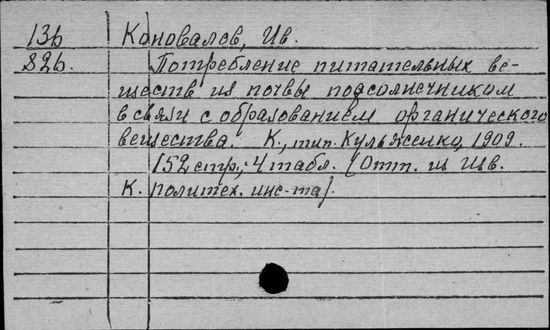 13b Коновалов, Ив.
82b. Потребление питательных ве-
ществ из почвы подсолнечником
в связи с образованием органического
вещества. К., тип. Кульженко, 1909.
152 стр., 4 табл. (Отт. из Изв.
К. политех. инс-та).